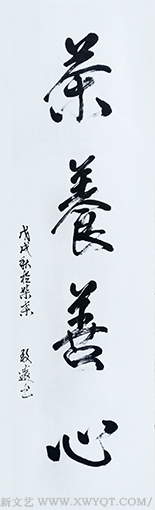 茶養善心
戊戌秋於荣荣
新文艺 WWW.XWYQT.COM/